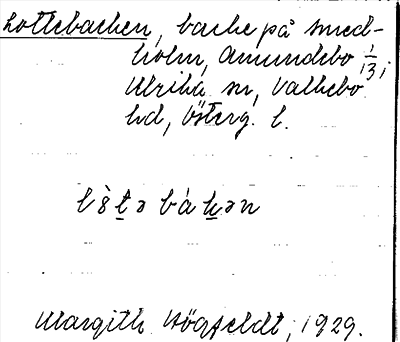 Lottebacken, backe på Smed-
holm, Amundebo 1/3;
Ulrika sn, Valkebo
hd, Österg. l.
lòtə bákən
Margith Högfeldt, 1929.